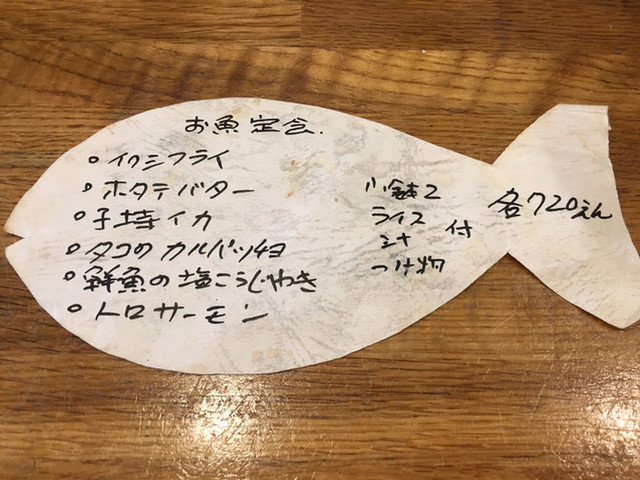 お魚定食.
○イワシフライ
○ホタテバター
○子持イカ
○タコのカルパッチョ
○鮮魚の塩こうじやき
○トロサーモン
小鉢2
ライス
汁
つけ物
付
各720えん